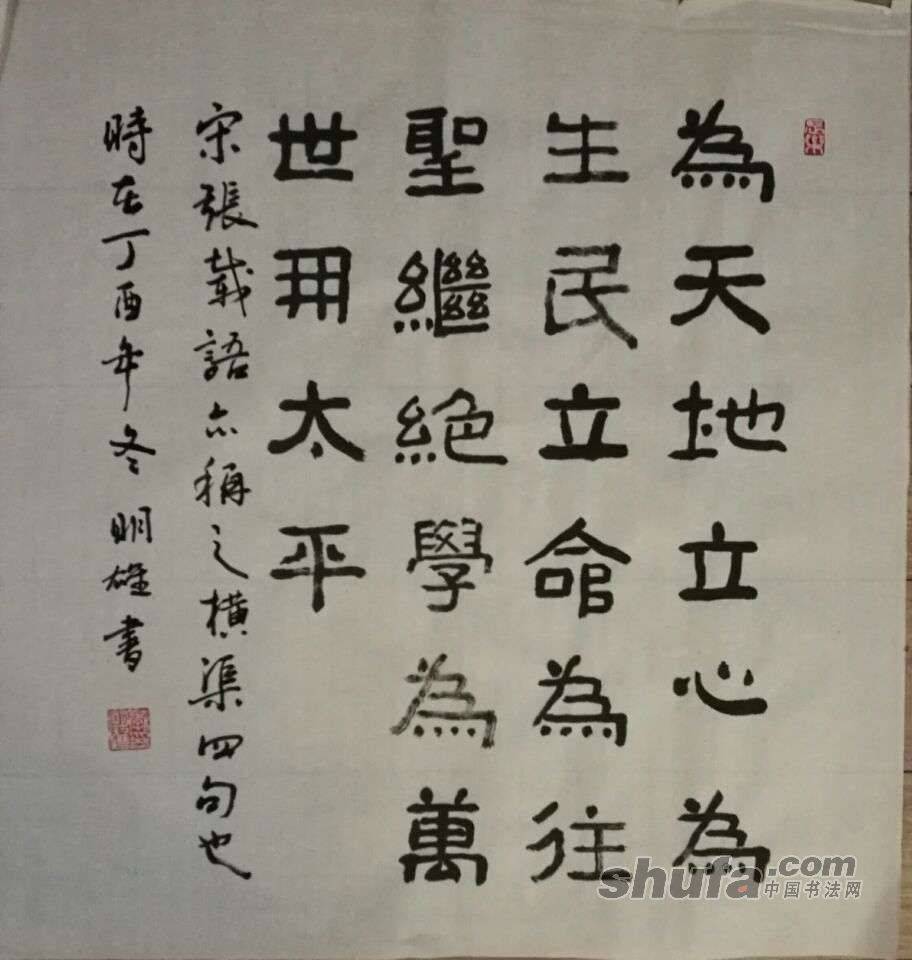 為天地立心為
生民立命為往
聖繼絕學為萬
世用太平
宋張載語亦稱之橫渠四句也
時在丁酉年冬 明雄書
shufa.com
中国书法网